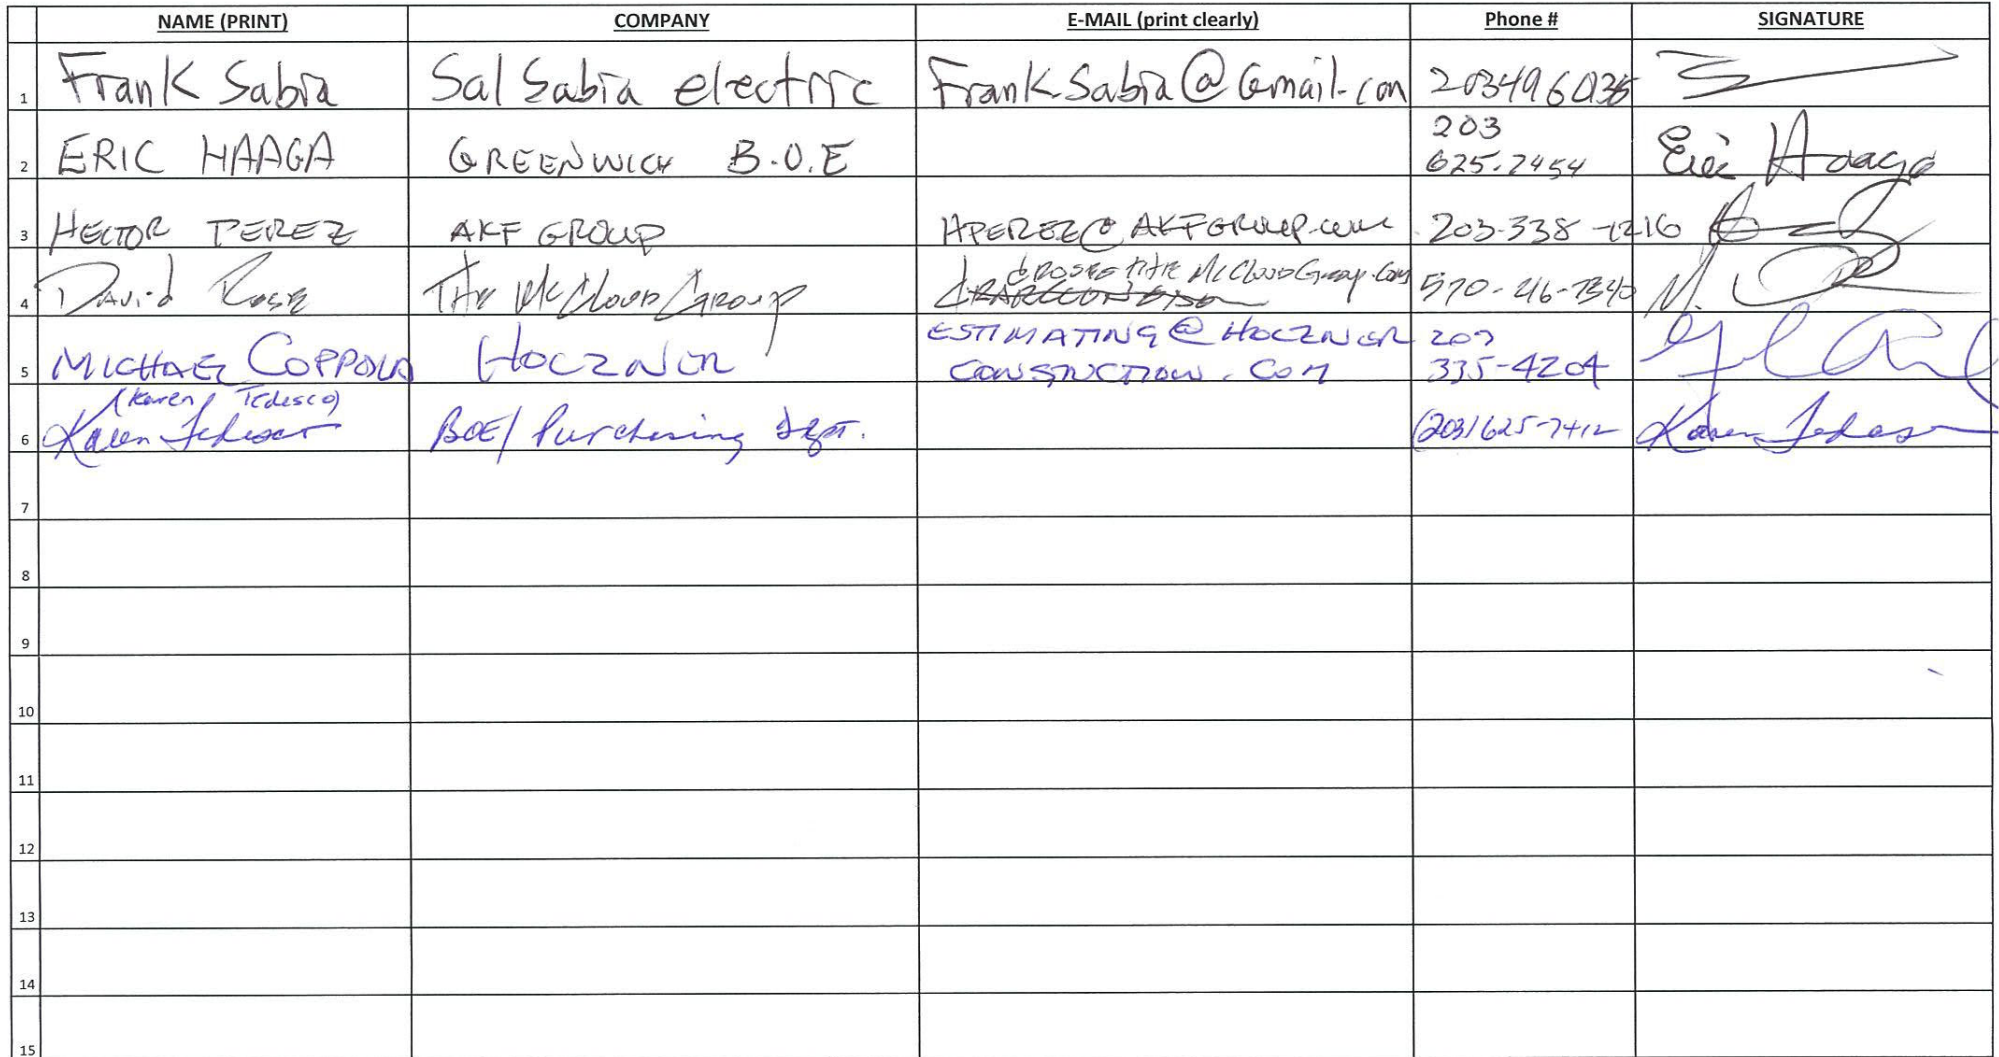 NAME (PRINT) COMPANY E-MAIL (print clearly) Phone # SIGNATURE
1 Frank Sabia Sal Sabia electric Frank.Sabia@Gmail.com
2 ERIC HAAGA GREENWICH B.O.E 203 625-7454 Eric Haaga
3 HECTOR PEREZ AKF GROUP HPEREZ@AKFGROUP.com 203-338-1216
4 David Rose The McCloud Group drose@theMcCloudGroup.com
5 MICHAEL COPPOLA HOCZNER ESTIMATING @ HOCZNER 203
CONSTRUCTION.COM 335-4204
(Karen Tedesco)
6 Karen Tedesco BOE/ Purchasing Dept. (203) 625-7412 Karen Tedesco
7
8
9
10
11
12
13
14
15